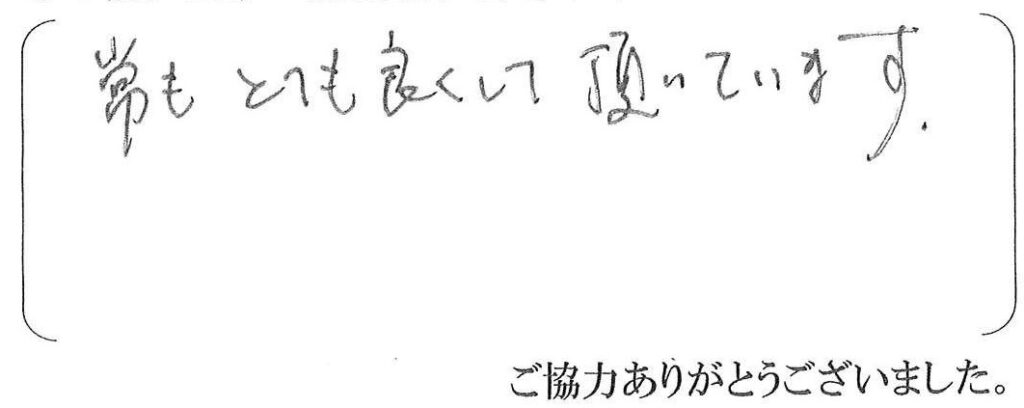 常も とても良くして 頂いています.
ご協力ありがとうございました。